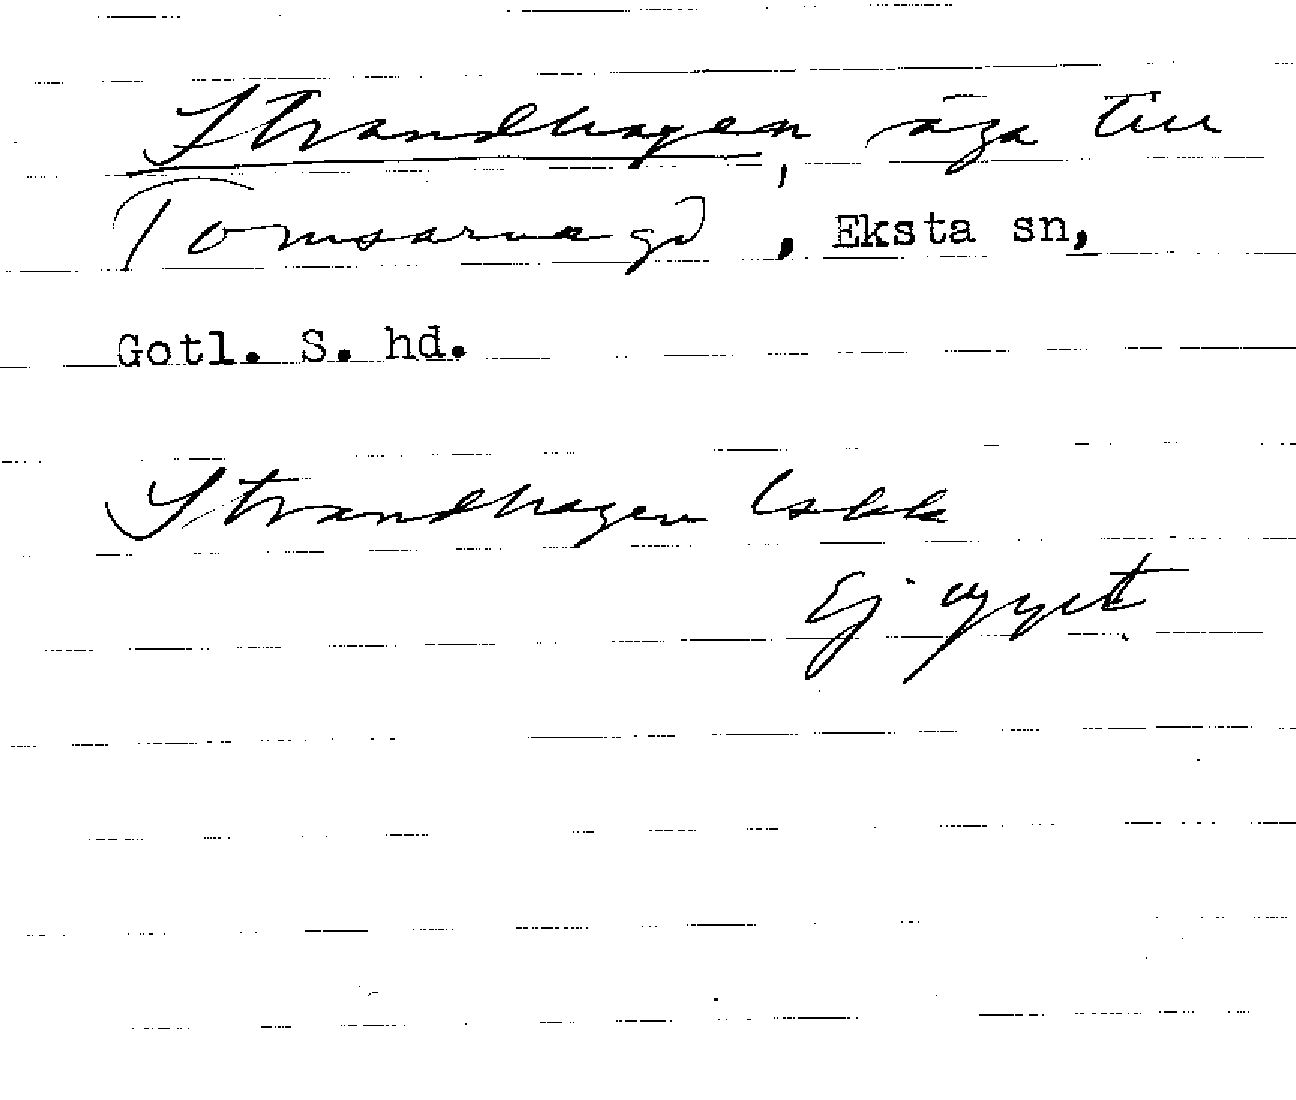 Strandhagen, äga till
Tomsarve gd, Eksta sn,
Gotl. S. hd.
Strandhagen Lskk
Ej uppt.